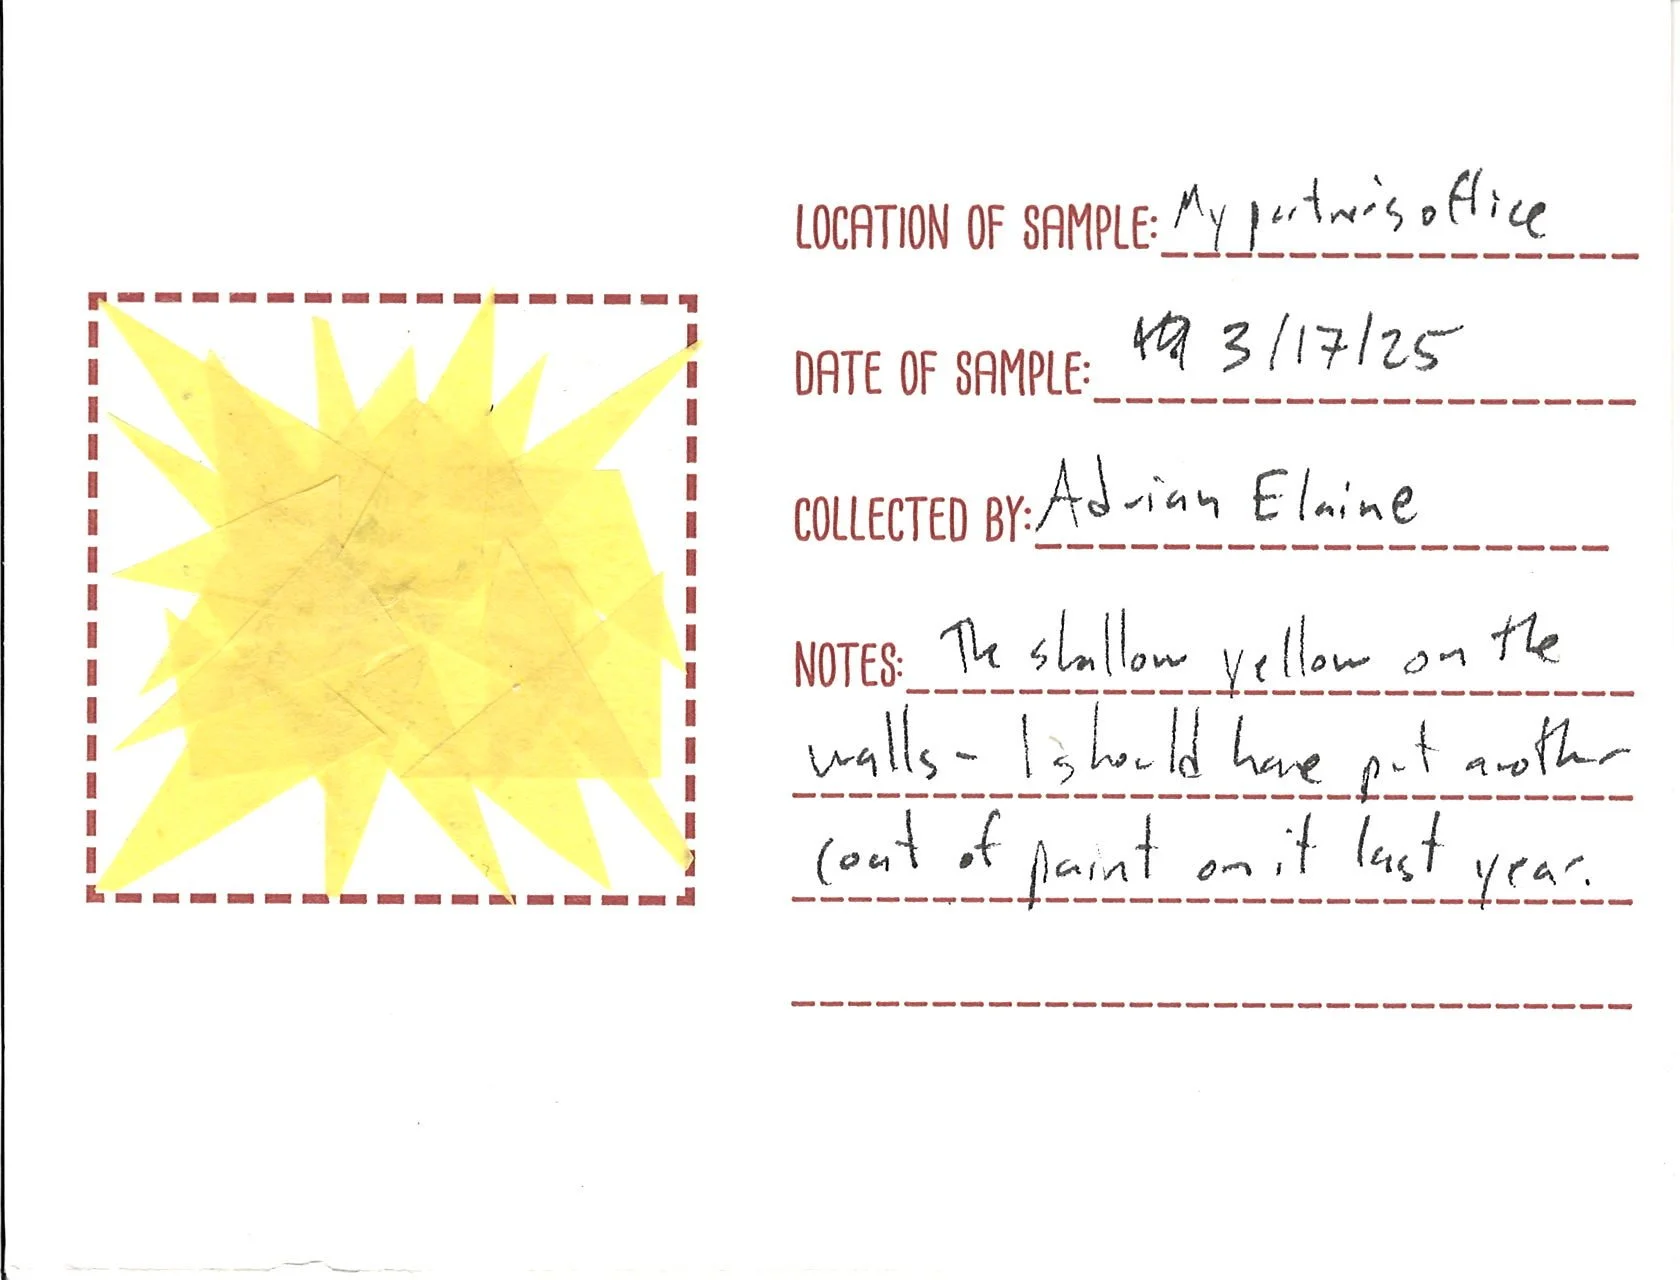 LOCATION OF SAMPLE: My partner's office
DATE OF SAMPLE: 3/17/25
COLLECTED BY: Adrian Elaine
NOTES: The shallow yellow on the
walls - I should have put another
coat of paint on it last year.